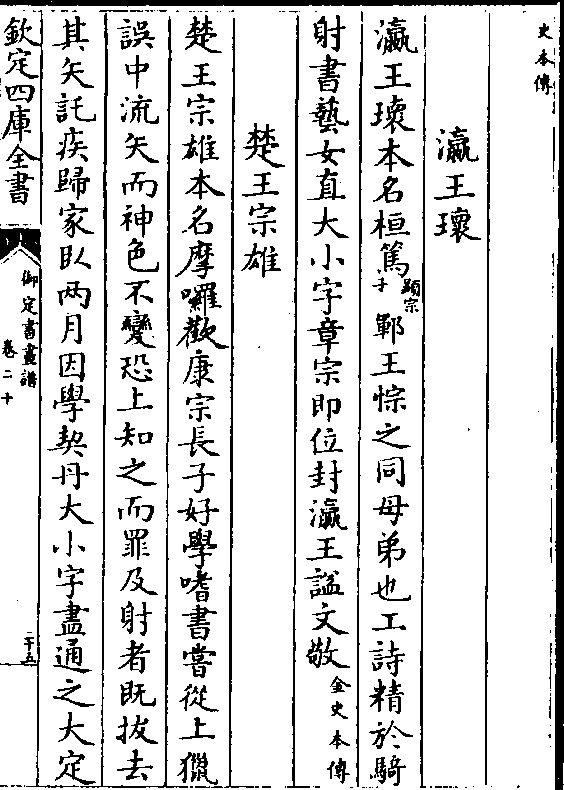 史本傳
瀛王瓌
瀛王瓌本名桓篤顯宗子鄆王悰之同母弟也工詩精於騎
射書藝女直大小字章宗即位封瀛王諡文敬金史本傳
楚王宗雄
楚王宗雄本名摩囉歡康宗長子好學嗜書嘗從上獵
誤中流矢而神色不變恐上知之而罪及射者既拔去
其矢託疾歸家臥两月因學契丹大小字盡通之大定
欽定四庫全書
御定書畫譜
卷二十
二十五